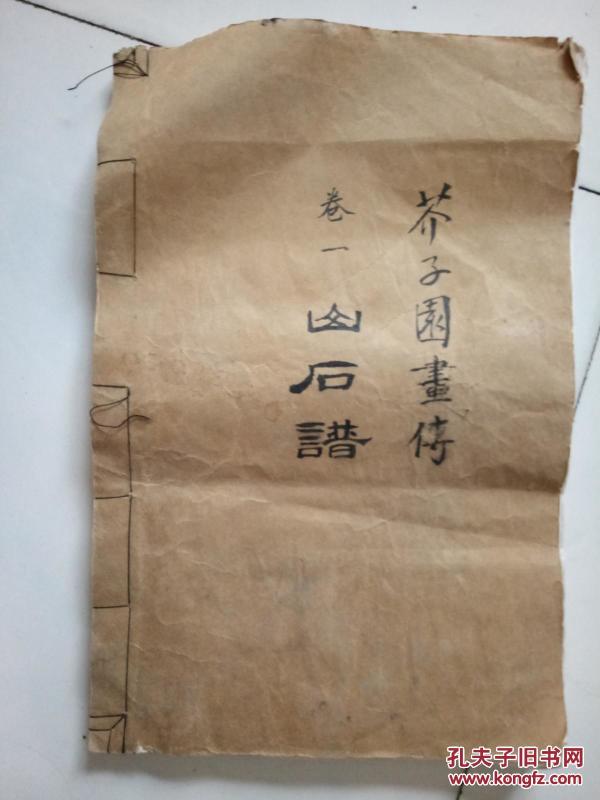 芥子園畫傳
卷一 山石譜
孔夫子旧书网
www.kongfz.com